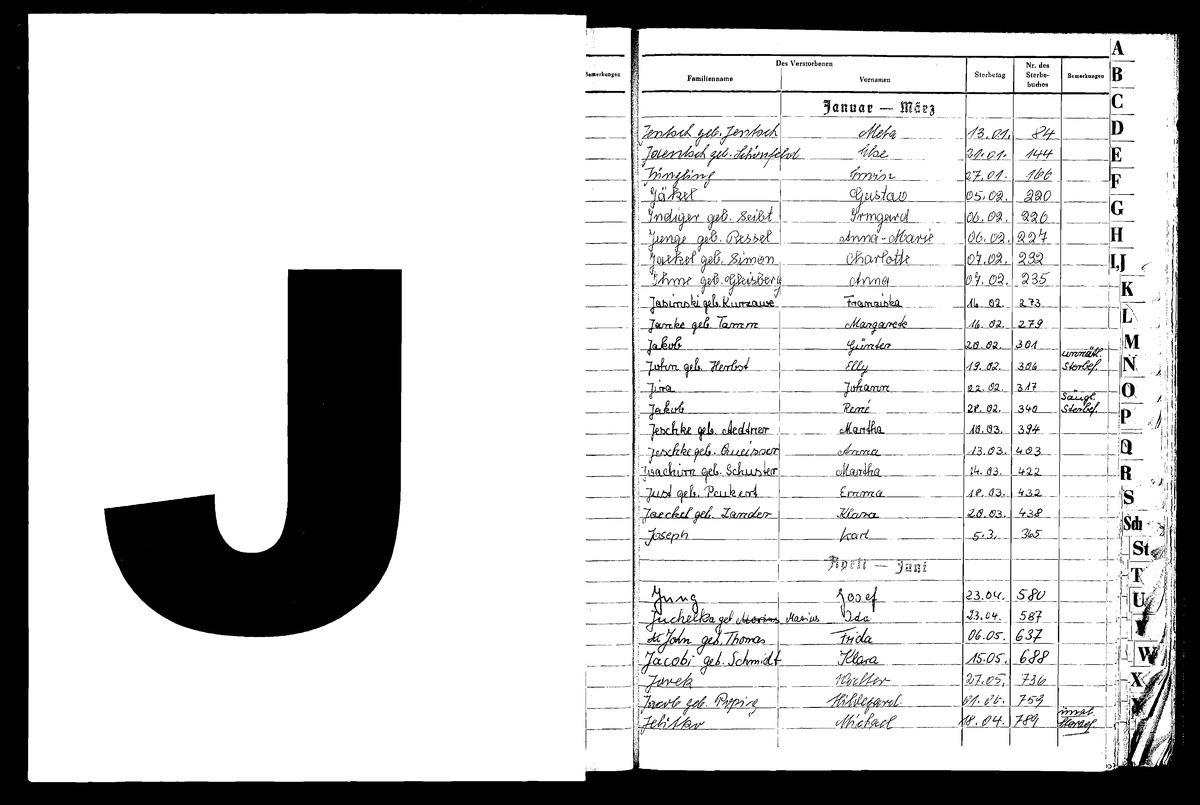 J
Bemerkungen
Des Verstorbenen
Familienname Vornamen Sterbetag Nr. des Sterbe- buches Bemerkungen
Januar — März
Jentsch geb. Jentsch Meta 13.01. 84
Jaentsch geb. Schönfeld Else 21.01. 144
Jüngling Erwin 27.01. 166
Jäkel Gustav 05.02. 220
Indiger geb. Seibt Irmgard 06.02. 226
Junge geb. Pessel Anna-Marie 06.02. 227
Jaekel geb. Simon Charlotte 07.02. 232
Ihme geb. Gleisberg Anna 07.02. 235
Jasinski geb. Kurzawe Franziska 16.02. 273
Jancke geb. Tamm Margarete 16.02. 279
Jakob Günter 20.02. 301
John geb. Herbst Elly 19.02. 306 unnatl. Sterbef.
Jira Johann 22.02. 317
Jakob René 28.02. 340 Säugl. Sterbef.
Jeschke geb. Aedtner Martha 10.03. 394
Jeschke geb. Queisser Anna 13.03. 403
Joachim geb. Schuster Martha 14.03. 422
Just geb. Peukert Emma 18.03. 432
Jaeckel geb. Zander Klara 20.03. 438
Joseph Karl 5.3. 365
April — Juni
Jung Josef 23.04. 580
Juchelka geb Marius Ida 23.04. 587
John geb. Thomas Frida 06.05. 637
Jacobi geb. Schmidt Klara 15.05. 688
Jurek Walter 27.05. 736
Jacob geb. Hildegard 01.06. 759
Jelitko Michael 18.04. 789
A
B
C
D
E
F
G
H
I,J
K
L
M
N
O
P
Q
R
S
Sch
St
T
U
V
W
X
Y